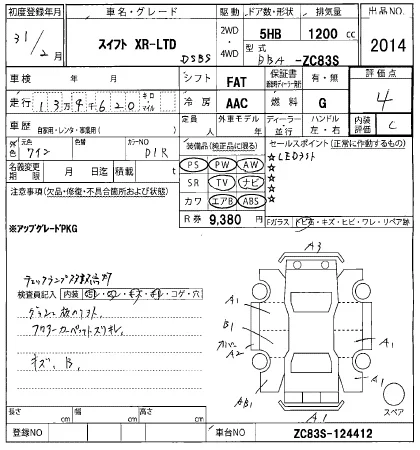 初度登録年月 車名・グレード 駆動 ドア数・形状 排気量 出品NO.
31/2月 スイフト XR-LTD DSBS 2WD・4WD 5HB 1200 cc 2014
型式 DBA -ZC83S
車検 年 月 シフト FAT 保証書 有・無 評価点 4
走行 13万4千620 キロ・マイル 冷房 AAC 燃料 G
車歴 自家用・レンタ・事業用( ) 定員 人 外車モデル 年 ディーラー・並行 ハンドル 左・右 内装評価 C
色 元色 ワイン 色替 カラーNO 装備品(純正品に限る) セールスポイント(正常に作動するもの)
名義変更期限 月 日迄 積載 t PS PW AW ☆LEDライト
SR TV ナビ ☆
注意事項(欠品・修復・不具合箇所および状態) カワ エアB ABS ☆
☆
R券 9,380 円 Fガラス トビ石・キズ・ヒビ・ワレ・リペア跡
※アップグレードPKG
A3
検査員記入 内装 コゲ・穴
A1
B1
A2
A1
A1
AB1
A1
キズ、B.
スペア
長さ cm 幅 cm 高さ cm
登録NO 車台NO ZC83S-124412